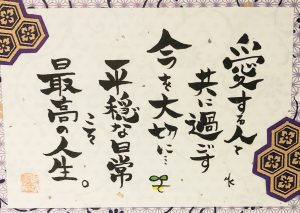 愛する人と
共に過ごす
今を大切に…
平穏な日常
こそ
最高の人生。